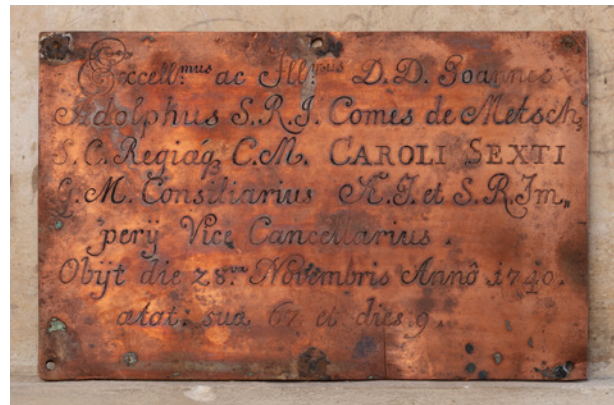 Excell:mus ac Illmus D.D. Joannes
Adolphus S.R.I. Comes de Metsch,
S.C. Regiáq C.M. CAROLI SEXTI
G.M. Consiliarius A.I. et S.R.Im„
perÿ Vice Cancellarius.
Obÿt die 28va Novembris Annô 1740.
ætat: suæ 67 et dies 9.